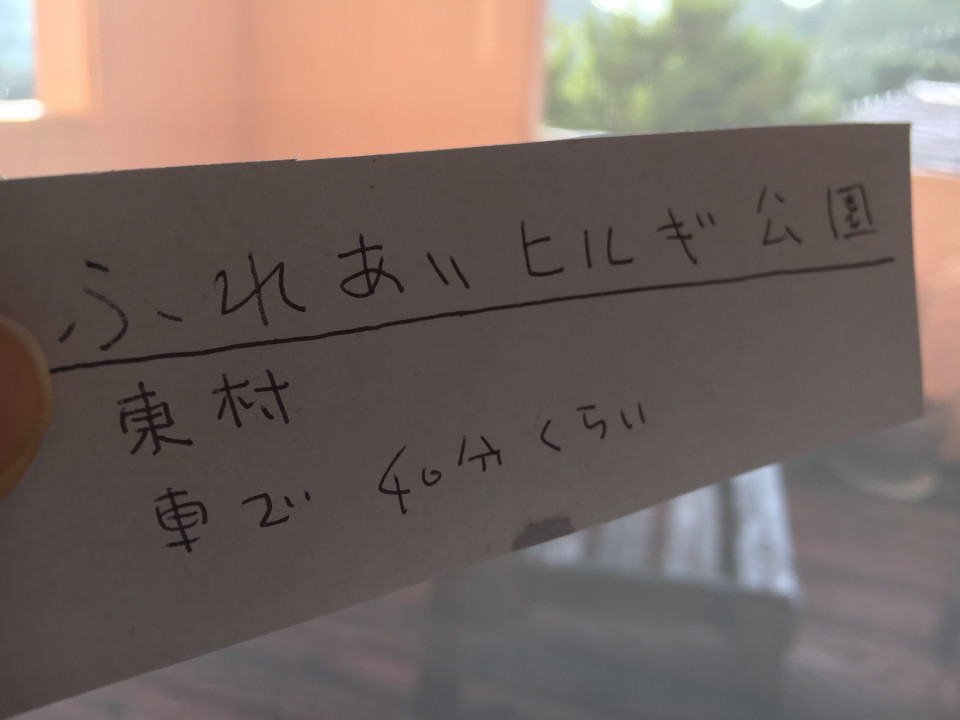 ふれあいヒルギ公園
東村
車で 40分くらい